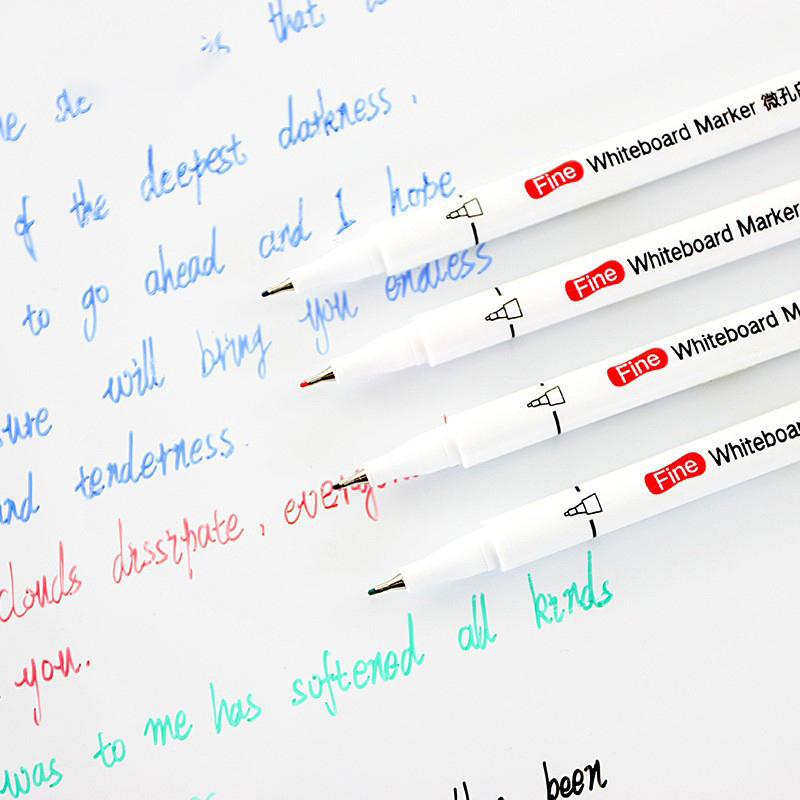 is that
the
of the deepest darkness.
to go ahead and I hope
will bring you endless
and tenderness.
clouds dissipate, everyone
you.
was to me has softened all kinds
been
Fine Whiteboard Marker 微孔
Fine Whiteboard Marker
Fine Whiteboard M
Fine Whiteboar